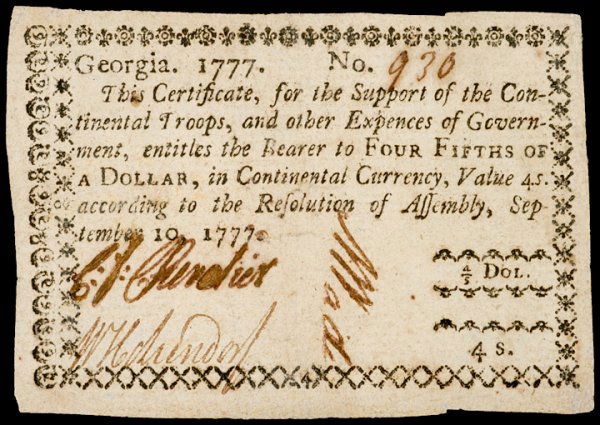 Georgia. 1777. No. 930
This Certificate, for the Support of the Con-
tinental Troops, and other Expences of Govern-
ment, entitles the Bearer to FOUR FIFTHS OF
A DOLLAR, in Continental Currency, Value 4s.
according to the Resolution of Assembly, Sep
tember 10, 1777.
4/5 DOL.
4 s.